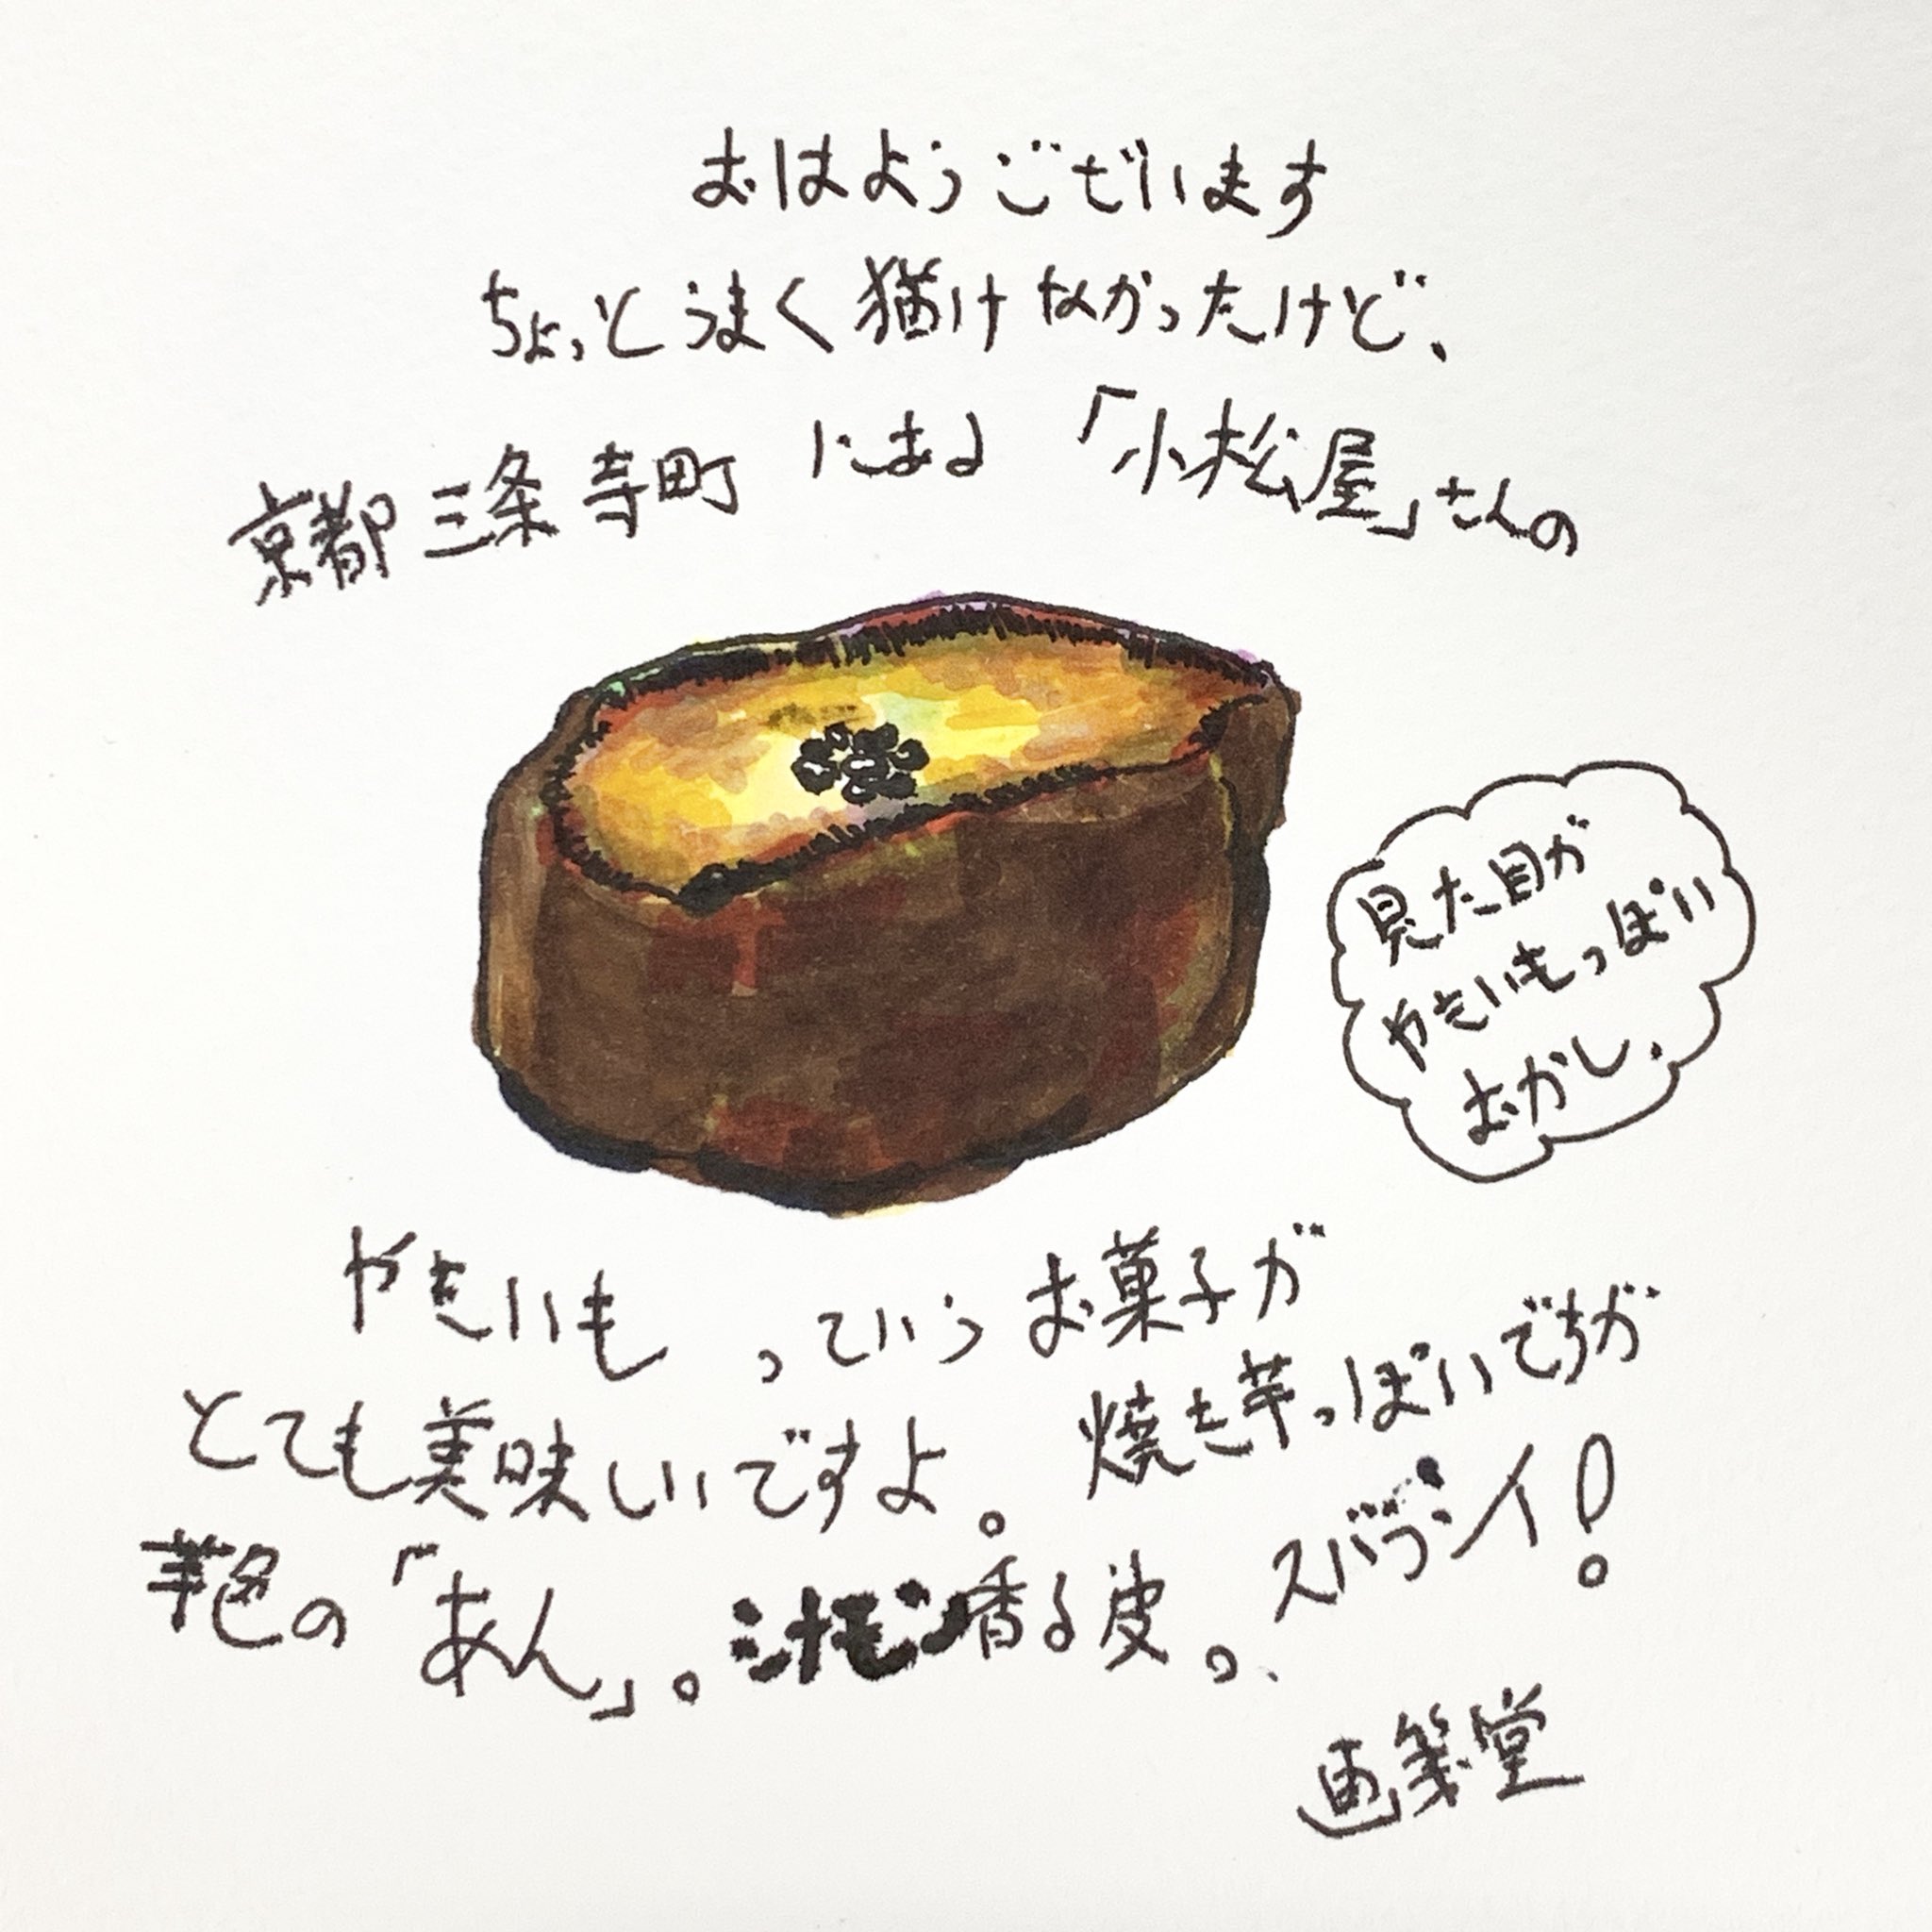 おはようございます
ちょっとうまく猫けなかったけど、
京都三条寺町にある「小松屋」さんの
見た目が
やきいもっぽい
おかし.
やきいもっていうお菓子が
とても美味しいですよ。焼き芋っぽいでちが
芋色の「あん」。シナモン香る皮。、スバラシイ!
画箋堂